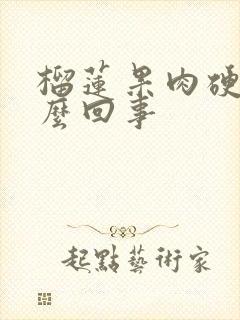 榴蓮果肉硬
麼回事
起點藝術家